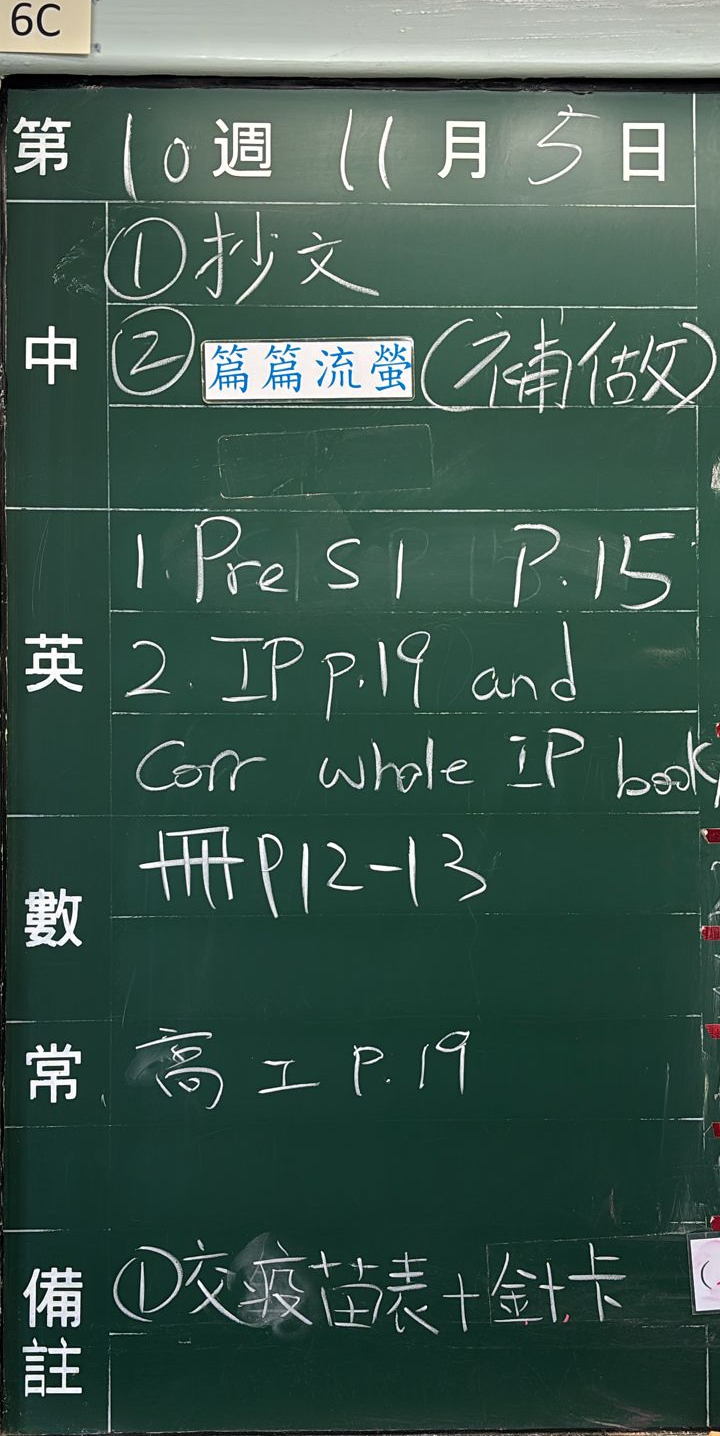 6C
第10週 11月5日
中
①抄文
②篇篇流螢(補做)
英
1. Pre S1 P.15
2. IP p.19 and
Corr whole IP book
數
冊P12-13
常
高工 P.19
備註
①交疫苗表+針卡